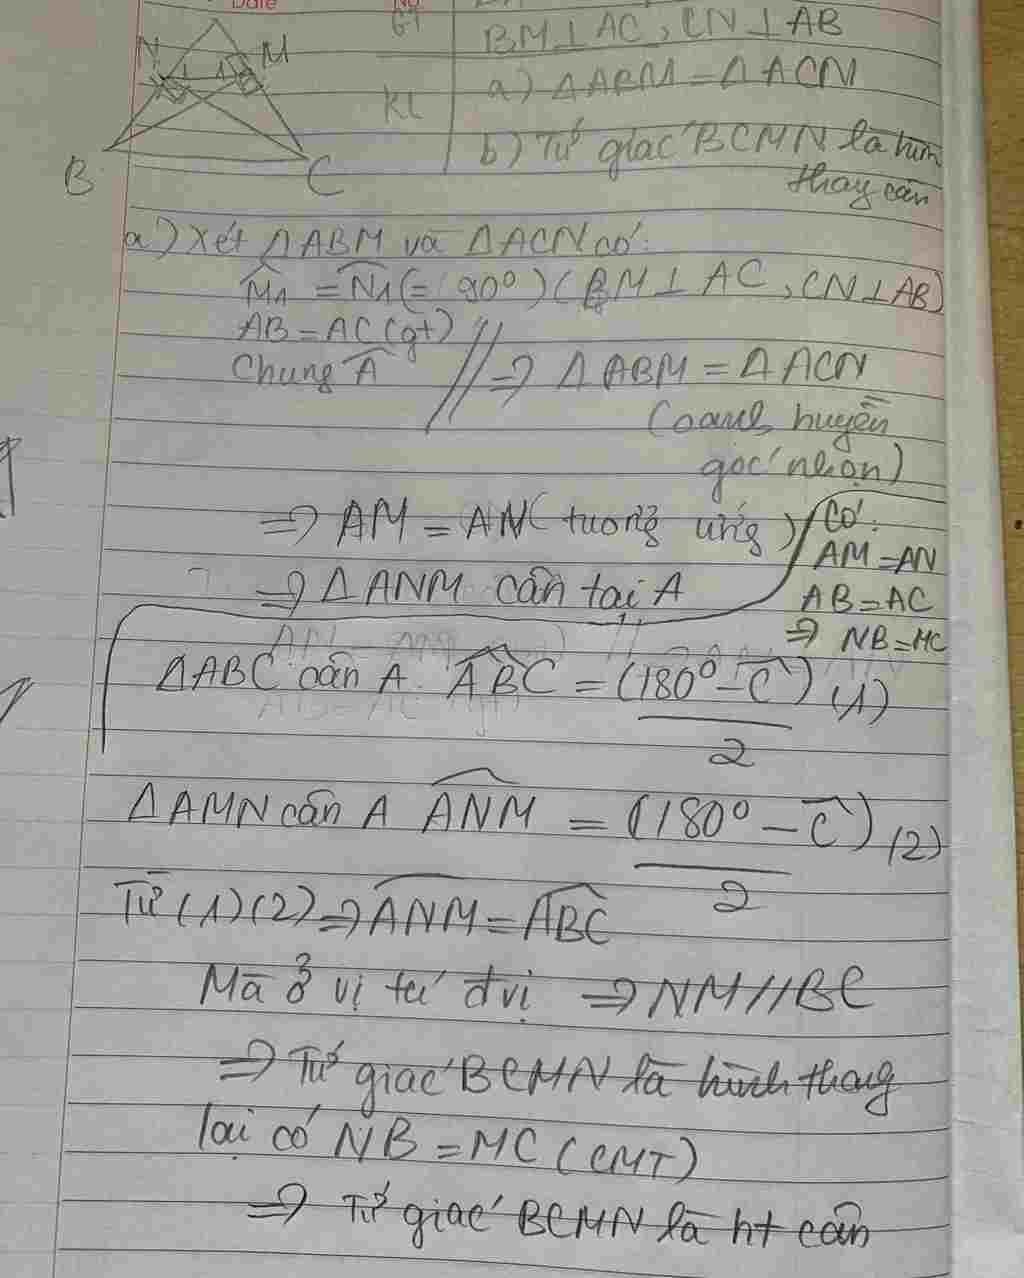 Date
No
N
M
B
C
GT
BM⊥AC, CN⊥AB
KL
a) ΔABM = ΔACN
b) Tứ giác BCMN là hình
thay cân
a) Xét ΔABM và ΔACN có:
M̂1 = N̂1 (= 90°) (BM⊥AC, CN⊥AB)
AB = AC (gt)
Chung Â
=> ΔABM = ΔACN
(cạnh huyền
góc nhọn)
=> AM = AN (tương ứng)
=> ΔANM cân tại A
Có:
AM = AN
AB = AC
=> NB = MC
ΔABC cân A. ABC = (180° - C) (1)
2
ΔAMN cân A ANM = (180° - C) (2)
2
Từ (1) (2) => ANM = ABC
Mà ở vị trí đvị => NM//BC
=> Tứ giác BCMN là hình thang
lại có NB = MC (CMT)
=> Tứ giác BCMN là ht cân